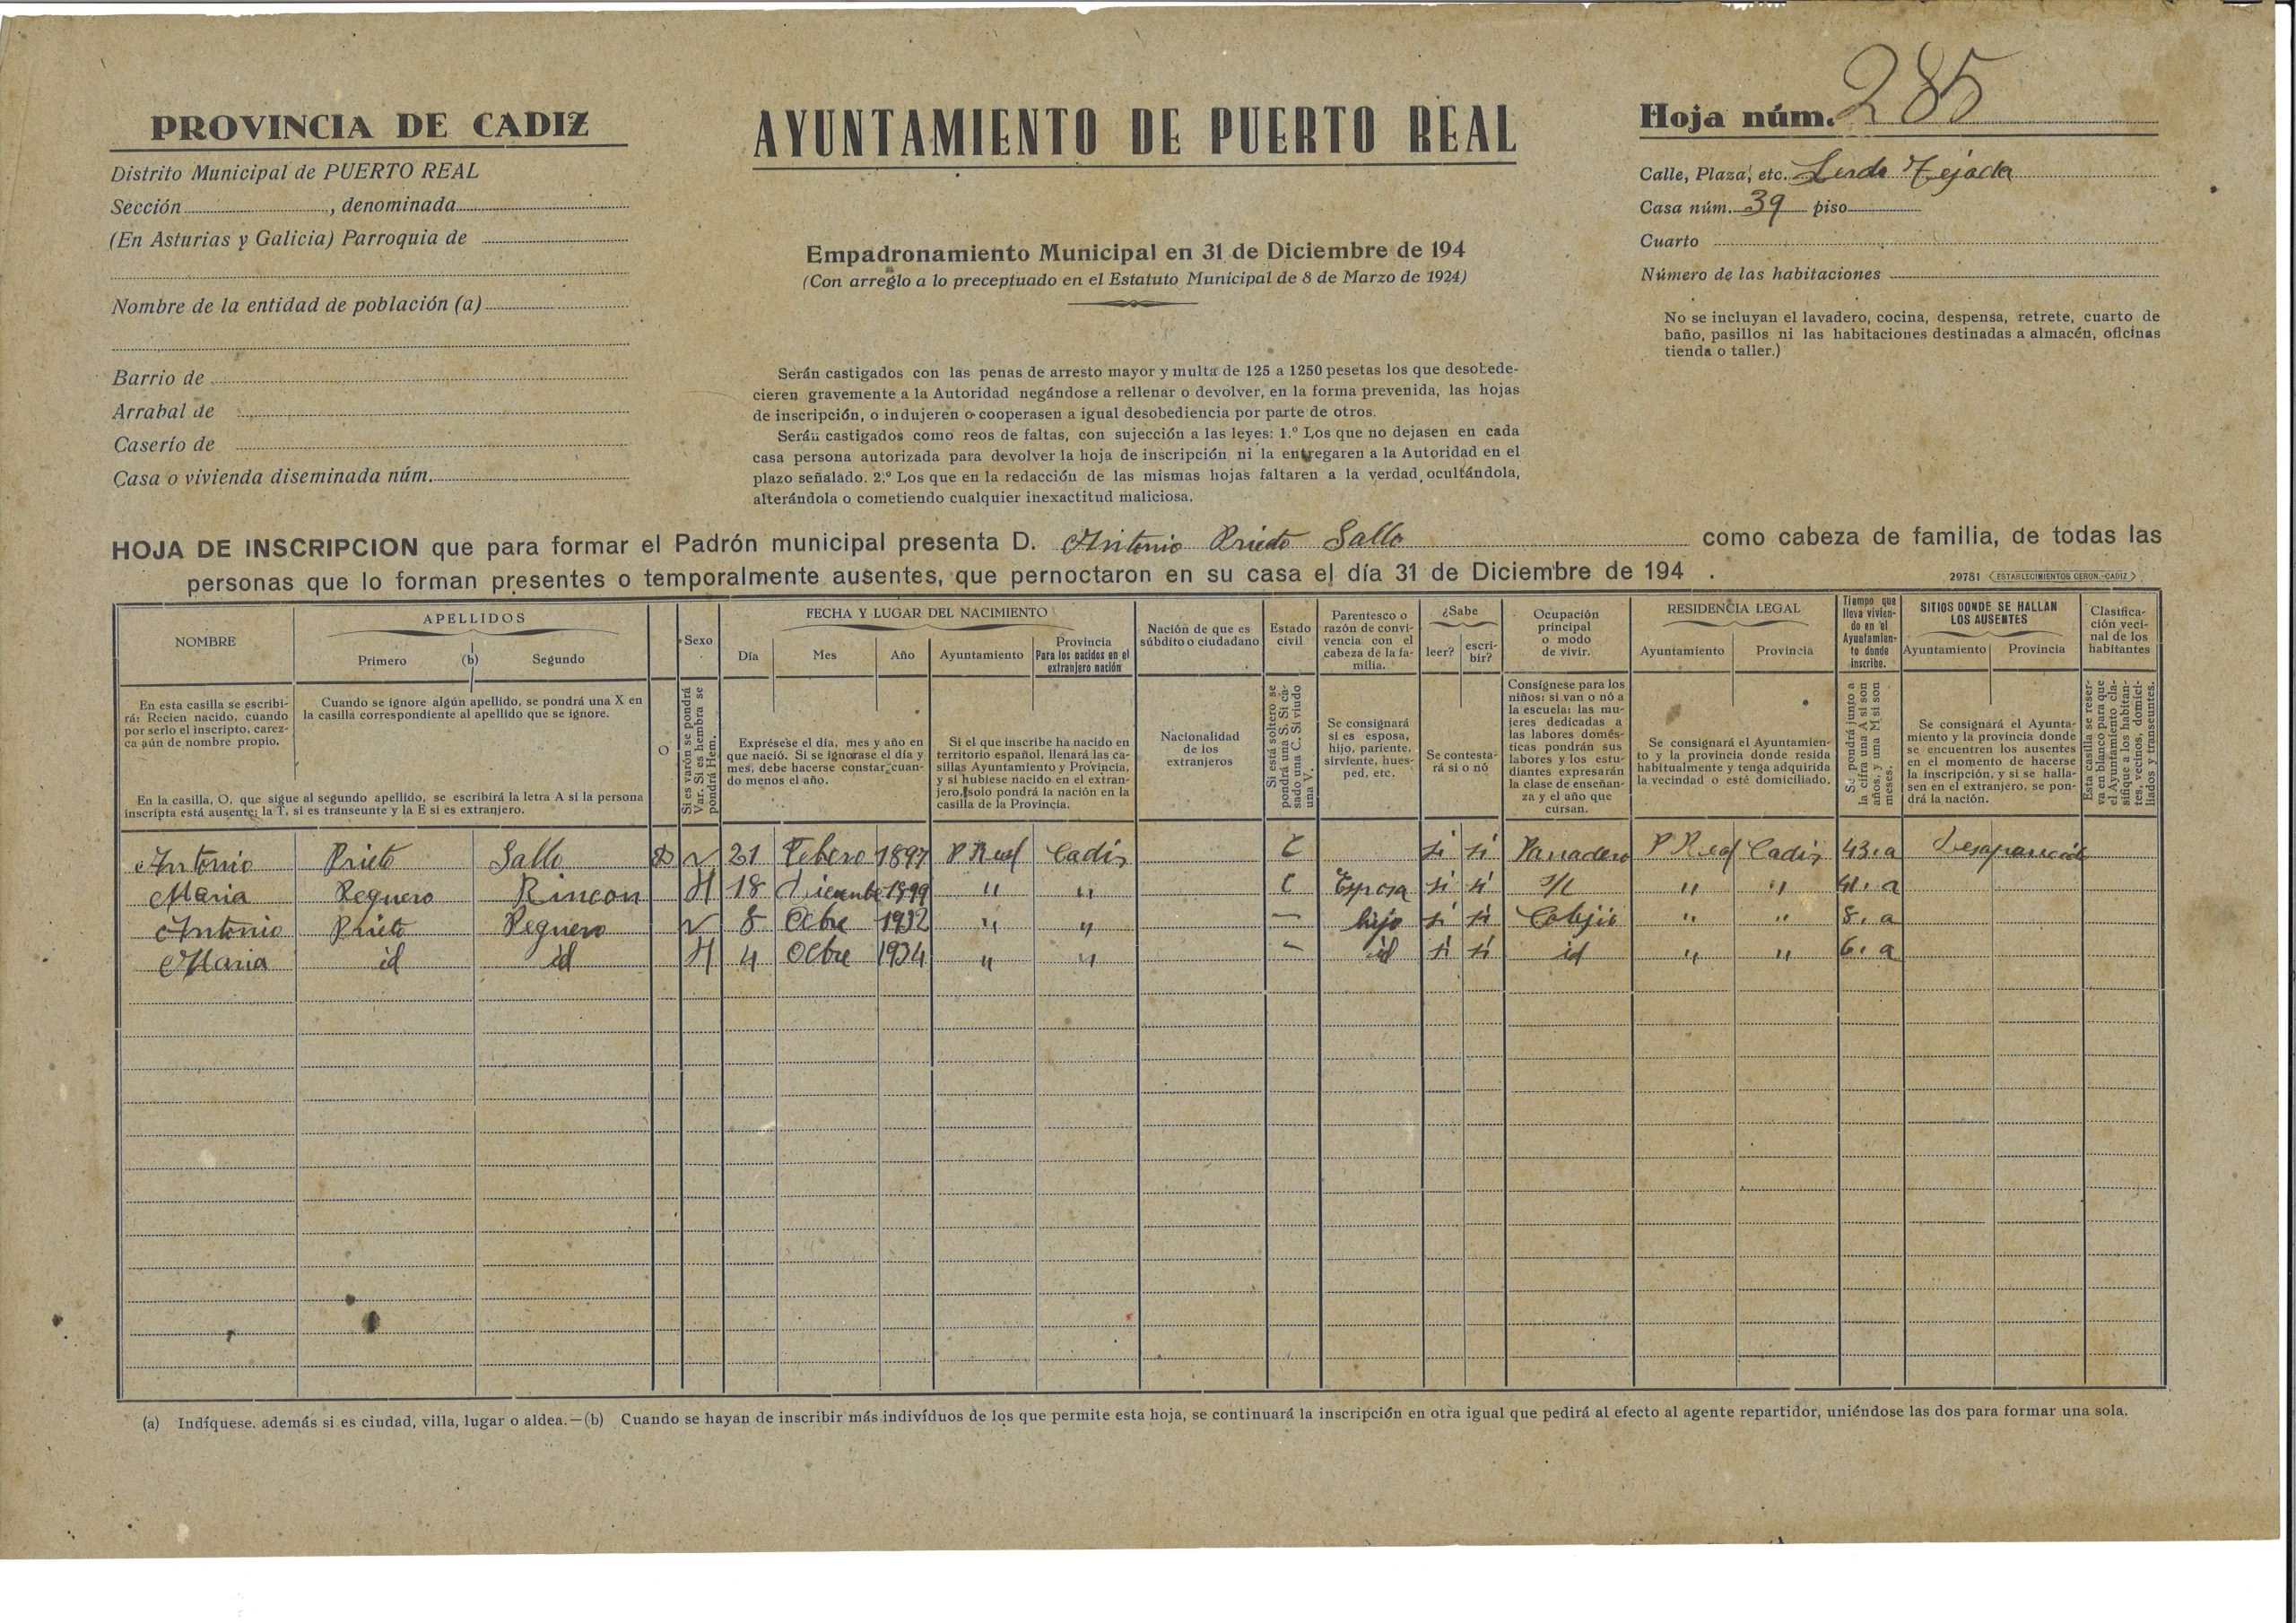 PROVINCIA DE CADIZ
Distrito Municipal de PUERTO REAL
Sección , denominada
(En Asturias y Galicia) Parroquia de
Nombre de la entidad de población (a)
Barrio de
Arrabal de
Caserío de
Casa o vivienda diseminada núm.
AYUNTAMIENTO DE PUERTO REAL
Empadronamiento Municipal en 31 de Diciembre de 194
(Con arreglo a lo preceptuado en el Estatuto Municipal de 8 de Marzo de 1924)
Serán castigados con las penas de arresto mayor y multa de 125 a 1250 pesetas los que desobede-
cieren gravemente a la Autoridad negándose a rellenar o devolver, en la forma prevenida, las hojas
de inscripción, o indujeren o cooperasen a igual desobediencia por parte de otros.
Serán castigados como reos de faltas, con sujección a las leyes: 1.º Los que no dejasen en cada
casa persona autorizada para devolver la hoja de inscripción ni la entregaren a la Autoridad en el
plazo señalado. 2.º Los que en la redacción de las mismas hojas faltaren a la verdad, ocultándola,
alterándola o cometiendo cualquier inexactitud maliciosa.
Hoja núm. 285
Calle, Plaza, etc. Lerdo Tejada
Casa núm. 39 piso
Cuarto
Número de las habitaciones
No se incluyan el lavadero, cocina, despensa, retrete, cuarto de
baño, pasillos ni las habitaciones destinadas a almacén, oficinas
tienda o taller.)
HOJA DE INSCRIPCION que para formar el Padrón municipal presenta D. Antonio Prieto Sallo como cabeza de familia, de todas las
personas que lo forman presentes o temporalmente ausentes, que pernoctaron en su casa el día 31 de Diciembre de 194 .
29781 (ESTABLECIMIENTOS CERON.-CADIZ)
NOMBRE
APELLIDOS
Primero (b) Segundo
Sexo
FECHA Y LUGAR DEL NACIMIENTO
Día Mes Año Ayuntamiento
Provincia
Para los nacidos en el
extranjero nación
Nación de que es
súbdito o ciudadano
Estado
civil
Parentesco o
razón de convi-
vencia con el
cabeza de la fa-
milia.
¿Sabe
leer? escri-
bir?
Ocupación
principal
o modo
de vivir.
RESIDENCIA LEGAL
Ayuntamiento Provincia
Tiempo que
lleva vivien-
do en el
Ayuntamien-
to donde
inscribe.
SITIOS DONDE SE HALLAN
LOS AUSENTES
Ayuntamiento Provincia
Clasifica-
ción veci-
nal de los
habitantes
En esta casilla se escribi-
rá: Recien nacido, cuando
por serlo el inscripto, carez-
ca aún de nombre propio.
Cuando se ignore algún apellido, se pondrá una X en
la casilla correspondiente al apellido que se ignore.
En la casilla, O, que sigue al segundo apellido, se escribirá la letra A si la persona
inscripta está ausente; la T, si es transeunte y la E si es extranjero.
O
Si es varón se pondrá
Var. Si es hembra se
pondrá Hem.
Exprésese el día, mes y año en
que nació. Si se ignorase el día y
mes, debe hacerse constar cuan-
do menos el año.
Si el que inscribe ha nacido en
territorio español, llenará las ca-
sillas Ayuntamiento y Provincia,
y si hubiese nacido en el extran-
jero, solo pondrá la nación en la
casilla de la Provincia.
Nacionalidad
de los
extranjeros
Si está soltero se
pondrá una S. Si ca-
sado una C. Si viudo
una V.
Se consignará
si es esposa,
hijo, pariente,
sirviente, hues-
ped, etc.
Se contesta-
rá si o nó
Consígnese para los
niños: si van o nó a
la escuela: las mu-
jeres dedicadas a
las labores domés-
ticas pondrán sus
labores y los estu-
diantes expresarán
la clase de enseñan-
za y el año que
cursan.
Se consignará el Ayuntamien-
to y la provincia donde resida
habitualmente y tenga adquirida
la vecindad o esté domiciliado.
Se pondrá junto a
la cifra una A si son
años, y una M si son
meses.
Se consignará el Ayunta-
miento y la provincia donde
se encuentren los ausentes
en el momento de hacerse
la inscripción, y si se halla-
sen en el extranjero, se pon-
drá la nación.
Esta casilla se reser-
va en blanco para que
el Ayuntamiento cla-
sifique a los habitan-
tes, vecinos, domici-
liados y transeuntes.
Antonio Prieto Sallo V 21 Febrero 1897 P Real Cadiz C si si Panadero P Real Cadiz 43. a
Maria Reguero Rincon H 18 Diciembe 1899 " " C Esposa si si S/L " " 41. a
Antonio Prieto Reguero V 8 Octbe 1932 " " — hijo si si Colejio " " 8. a
Maria id id H 4 Octbe 1934 " " — id si si id " " 6. a
(a) Indíquese. además si es ciudad, villa, lugar o aldea.—(b) Cuando se hayan de inscribir más indivíduos de los que permite esta hoja, se continuará la inscripción en otra igual que pedirá al efecto al agente repartidor, uniéndose las dos para formar una sola.